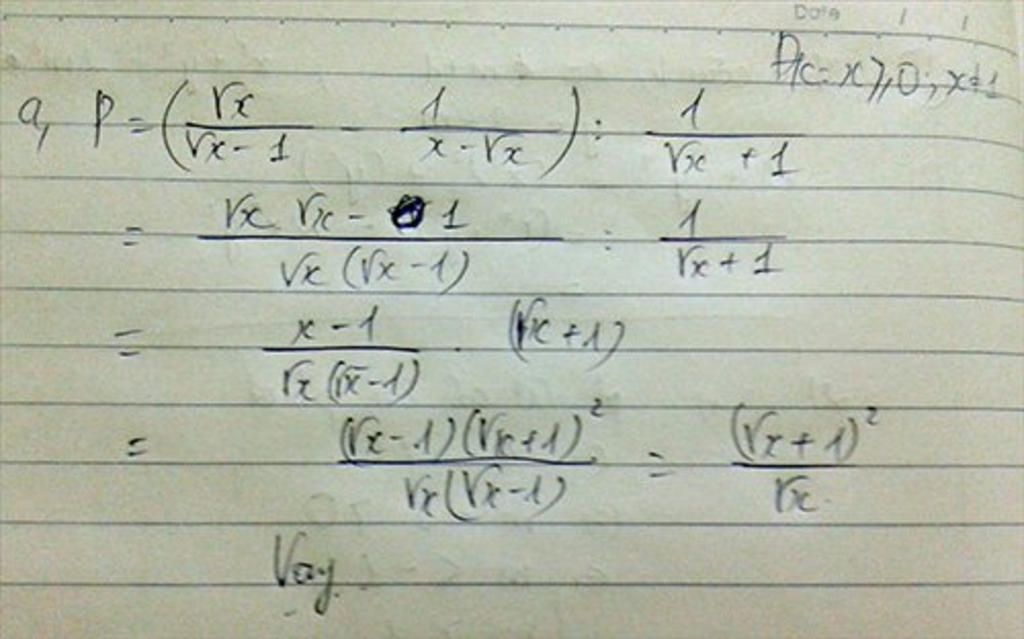 Date / /
Đk: x ⩾ 0; x ≠ 1
a, P = (√x/(√x - 1) - 1/(x - √x)) : 1/(√x + 1)
= (√x √x - 1)/(√x (√x - 1)) : 1/(√x + 1)
= (x - 1)/(√x (√x - 1)) . (√x + 1)
= (√x - 1)(√x + 1)²/(√x (√x - 1)) = (√x + 1)²/√x.
Vậy